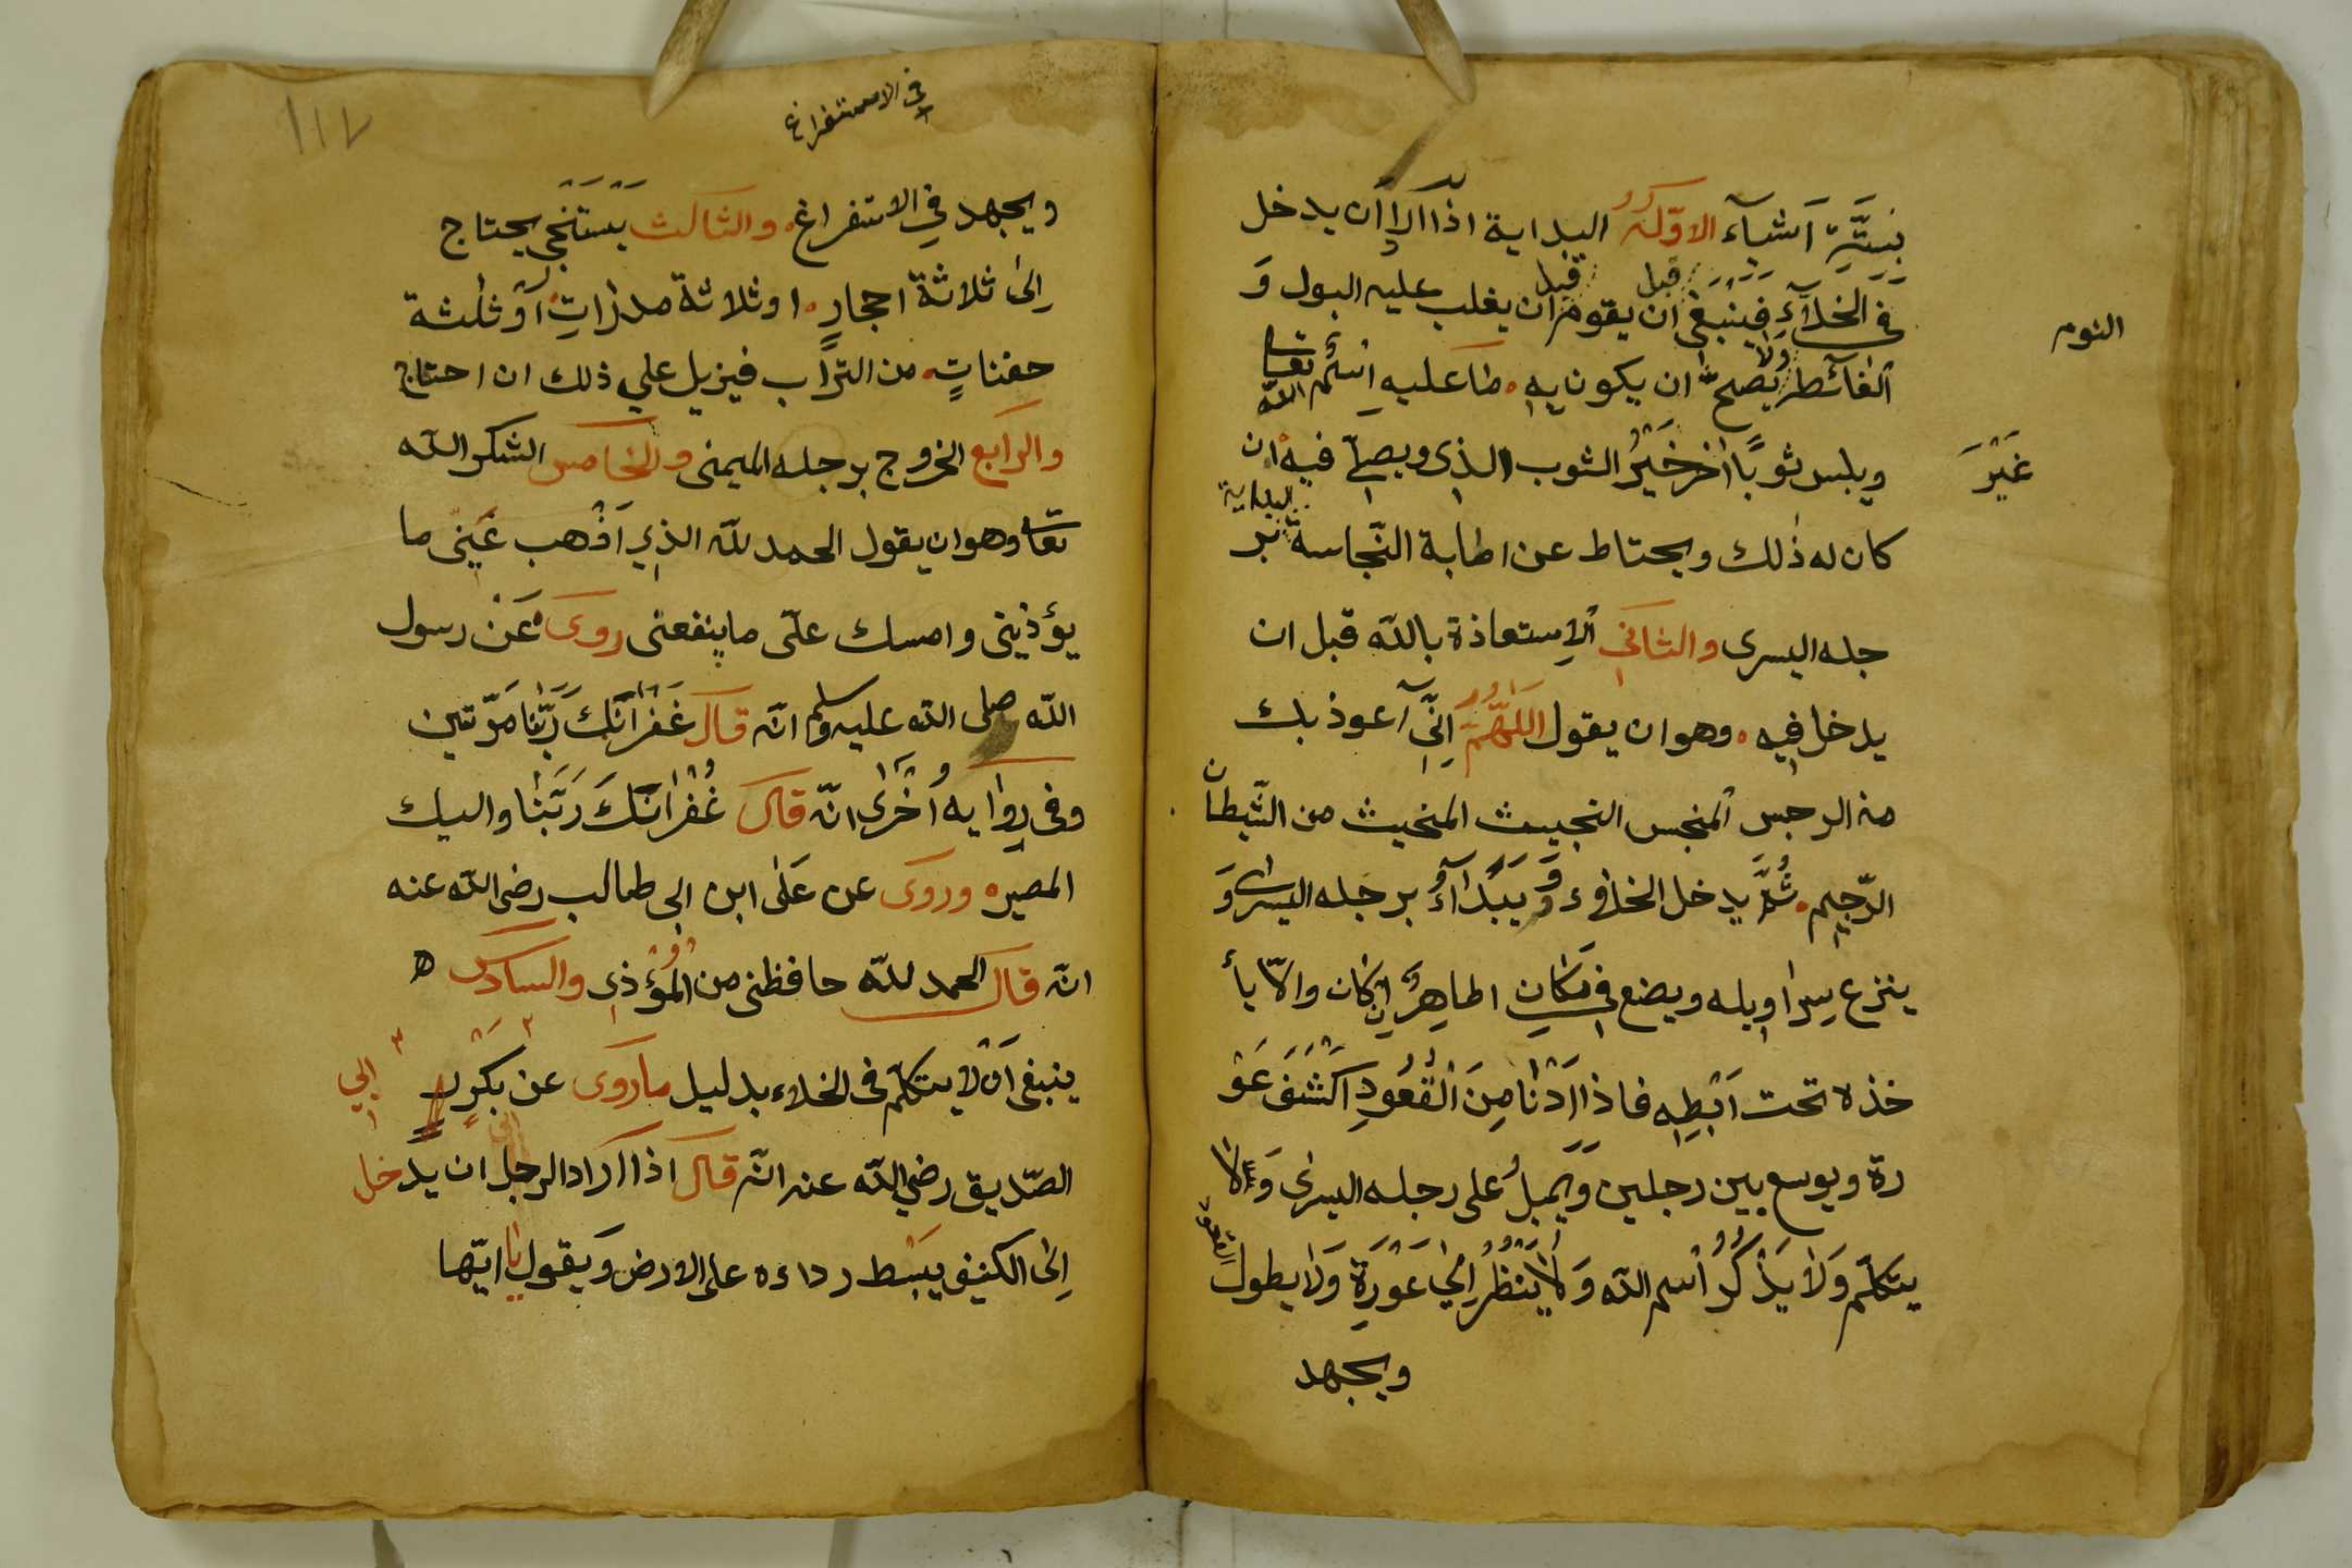 بستّة اشياء الاوّل البداية اذا اراد ان يدخل
في الخلآء فينبغي ان يقوم قبل ان يغلب عليه البول و
النوم
الغائط ولا يصحّ ان يكون به ما عليه اسم الله تعا
ويلبس ثوبًا اخر غير الثوب الذي ويصلّي فيه ان
غَيْرَ
كان له ذلك ويحتاط عن اطابة النّجاسة البداية بر
جله اليسرى والثاني الاستعاذة بالله قبل ان
يدخل فيه وهو ان يقول اللهمّ اِنّي اعوذ بك
من الرجس المنجس النجيث المنحيث من الشّيطان
الرّجيم ثُمَّ يدخل الخلاء ويبداء برجله اليسرى وَ
ينزع سراويله ويضع في مكانٍ اطاهرٍ ان كان والّا يأ
خذه تحت ابطه فاذا ادنا مِنَ الْقُعُودِ اكْشَفَ عَوْ
رة ويوسع بين رجلين وَيميلُ على رجله اليسرى وَلا
يتكلّم وَلا يَذْكُرُ اسم الله وَلا يَنْظُرُ اِلى عَوْرَةٍ وَلا يطول القعود
ويجهد
في الاستفراغ
١١٢
ويجهد في الاستفراغ والثالث يَسْتَنْجي يحتاج
اِلى ثلاثة احجارٍ او ثلاثة مدراتٍ اَوْ ثلثة
حفناتٍ من التراب فيزيل علي ذلك ان احتاج
والرابع الخروج برجله اليمنى والخامس الشكر الله
تعا وهو ان يقول الحمد لله الذي اَذْهب عَنّي ما
يؤذيني وامسك علىّ ما ينفعني روى عَنْ رسول
الله صلى الله عليه وسلم انّه قال غفرانك رَبّنا مرّتين
وفي رواية اُخْرى انّه قال غُفْرانَكَ رَبَّنا واليك
المصير وروى عن عَلى ابن ابي طالب رضى الله عنه
انّه قال الحمد لله حافظني من المُؤْذي والسادس
ينبغي اَنْ لا يتكلّم في الخلاء بدليل ما روى عن بَكْرٍ ابي
الصّديق رضي الله عنه انّه قال اذا اراد الرجل ان يدخل
اِلى الكنيف يبسط رداءه على الارض وَيقول يا ايّها